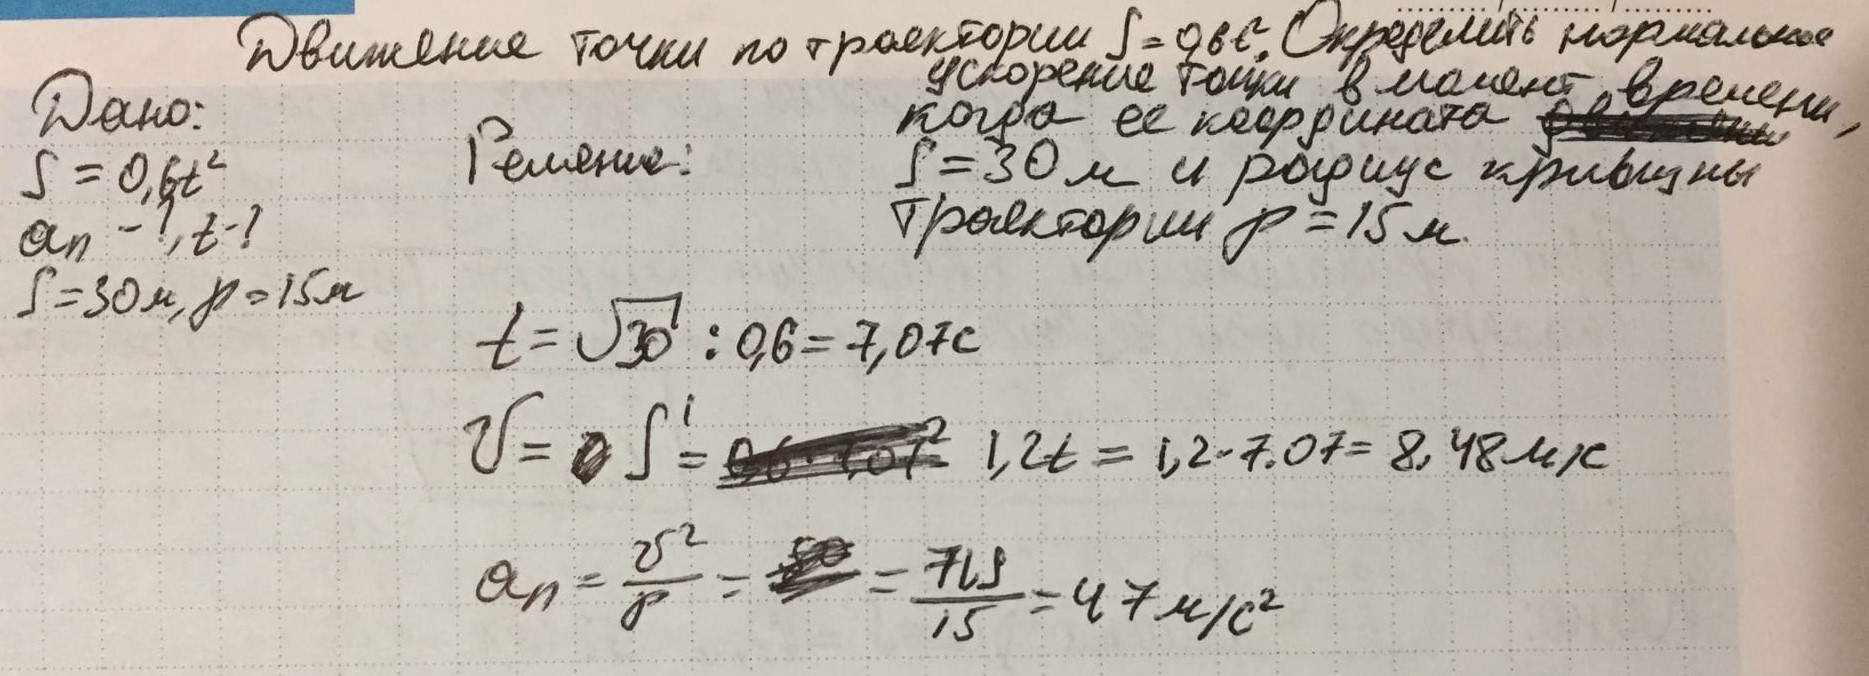 Движение точки по траектории S = 0,6t². Определить нормальное
ускорение точки в момент времени,
когда ее координата
S = 30 м и радиус кривизны
траектории ρ = 15 м.
Дано:
S = 0,6t²
an - ?, t - ?
S = 30 м, ρ = 15 м
Решение:
t = √30 : 0,6 = 7,07 с
V = S' = 1,2t = 1,2 · 7.07 = 8,48 м/с
an = v²/ρ = = 71,9/15 = 4,7 м/с²